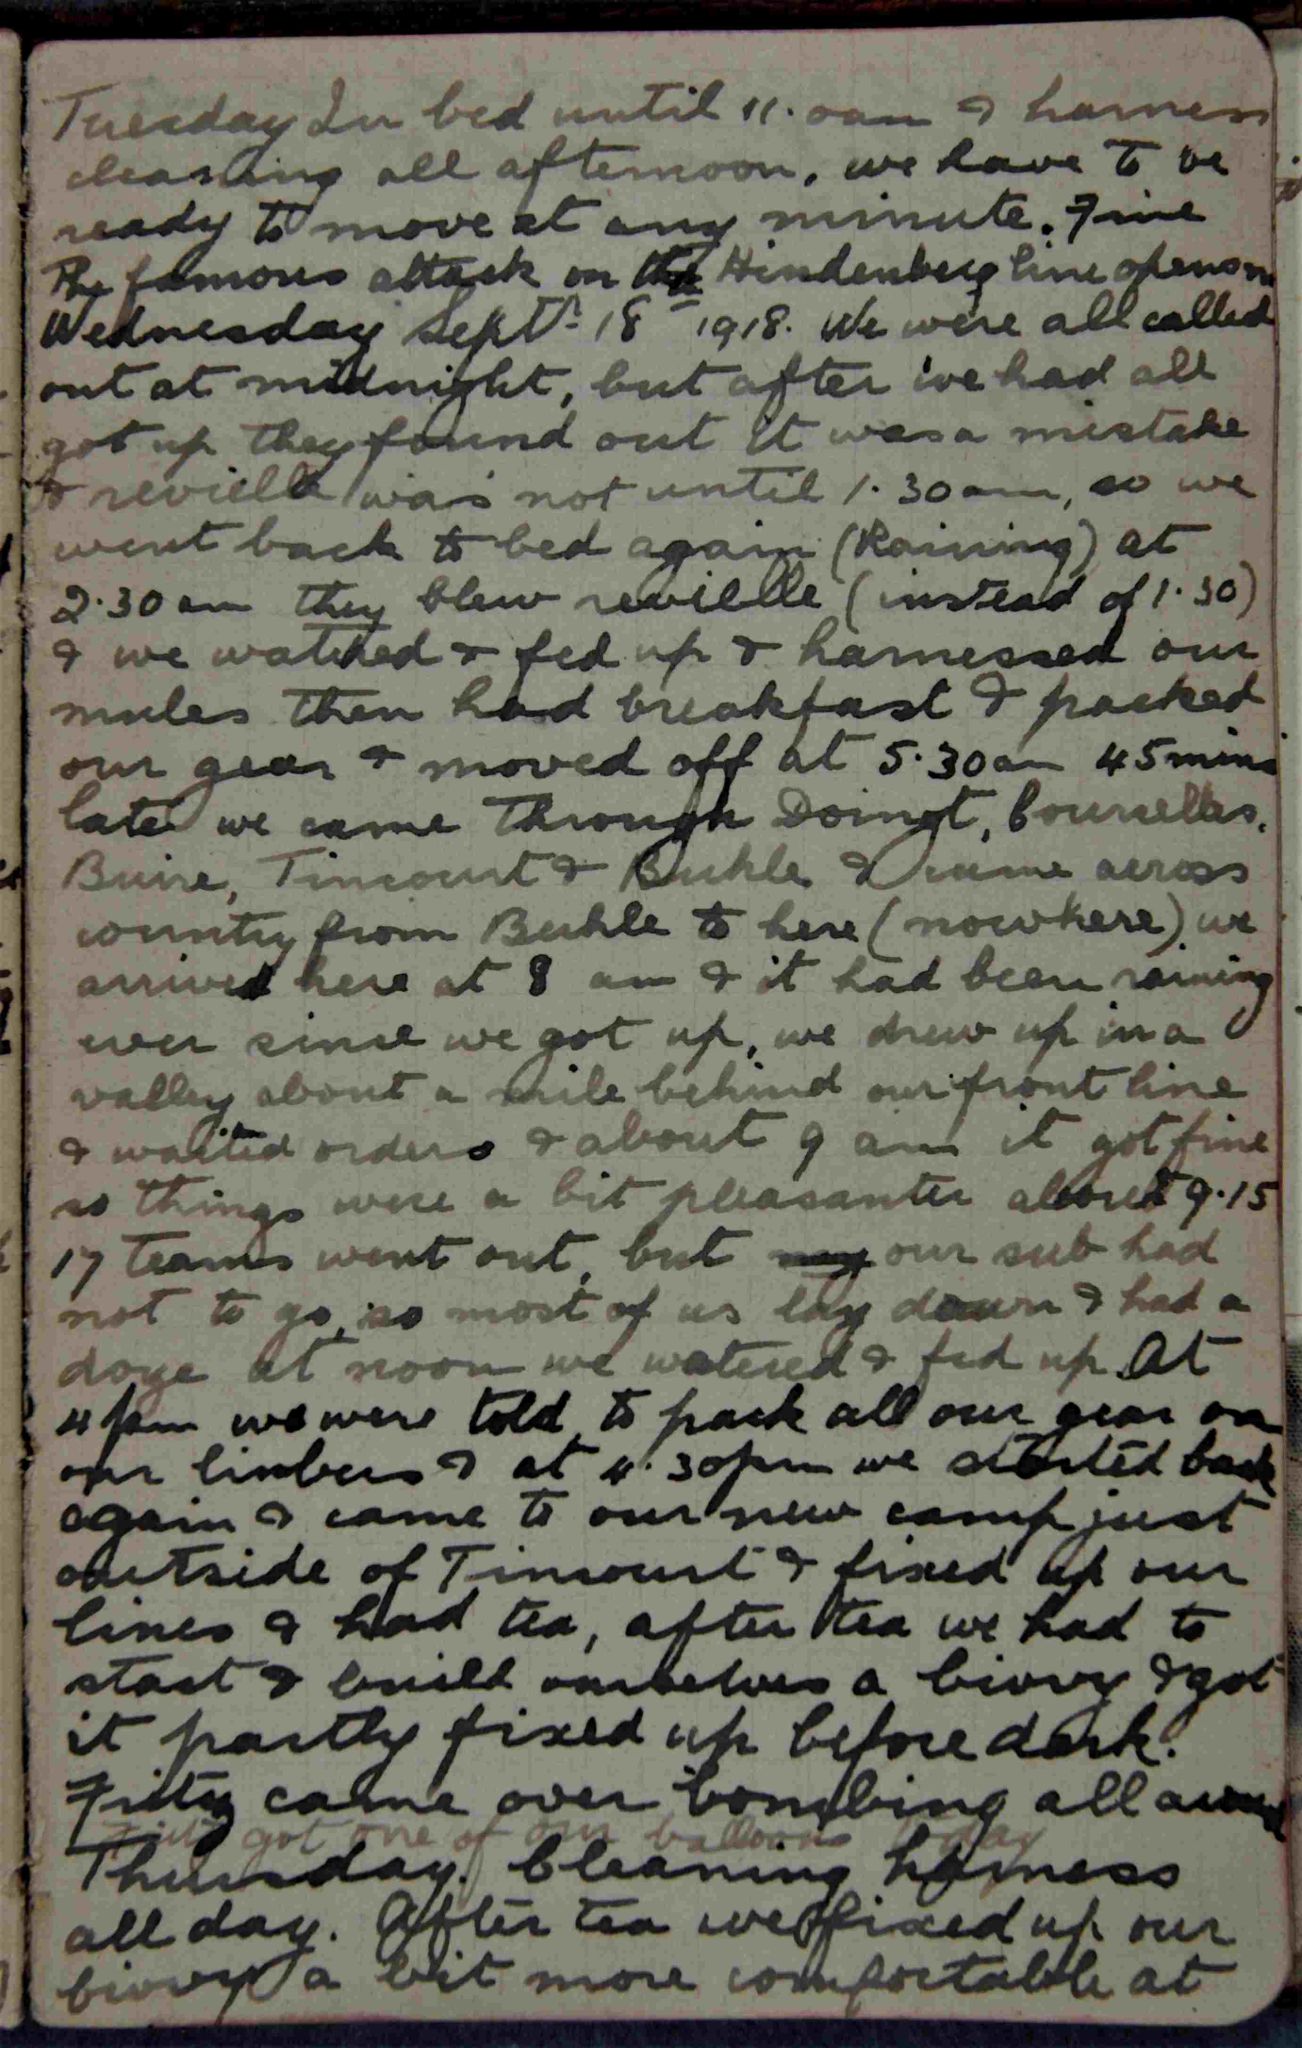 Tuesday In bed until 11.0am & harness
cleaning all afternoon, we have to be
ready to move at any minute. Fine
The famous attack on the Hindenberg line opens on
Wednesday Sept. 18th 1918. We were all called
out at midnight, but after we had all
got up they found out it was a mistake
& revielle was not until 1.30am, so we
went back to bed again (Raining) at
2.30am they blew revielle (instead of 1.30)
& we watered & fed up & harnessed our
mules then had breakfast & packed
our gear & moved off at 5.30am 45mins
later we came through Doingt, Courcelles,
Buire, Tincourt & Buhle & came across
country from Buhle to here (nowhere) we
arrived here at 8 am & it had been raining
ever since we got up, we drew up in a
valley about a mile behind our front line
& waited orders & about 9 am it got fine
so things were a bit pleasanter about 9.15
17 teams went out, but our sub had
not to go, so most of us lay down & had a
doze at noon we watered & fed up. At
4pm we were told to pack all our gear on
our limbers & at 4.30pm we started back
again & came to our new camp just
outside of Tincourt & fixed up our
lines & had tea, after tea we had to
start & build ourselves a bivvy & got
it partly fixed up before dark.
Fritz came over bombing all around
Fritz got one of our balloons today
Thursday. Cleaning harness
all day. After tea we fixed up our
bivvy a bit more comfortable at